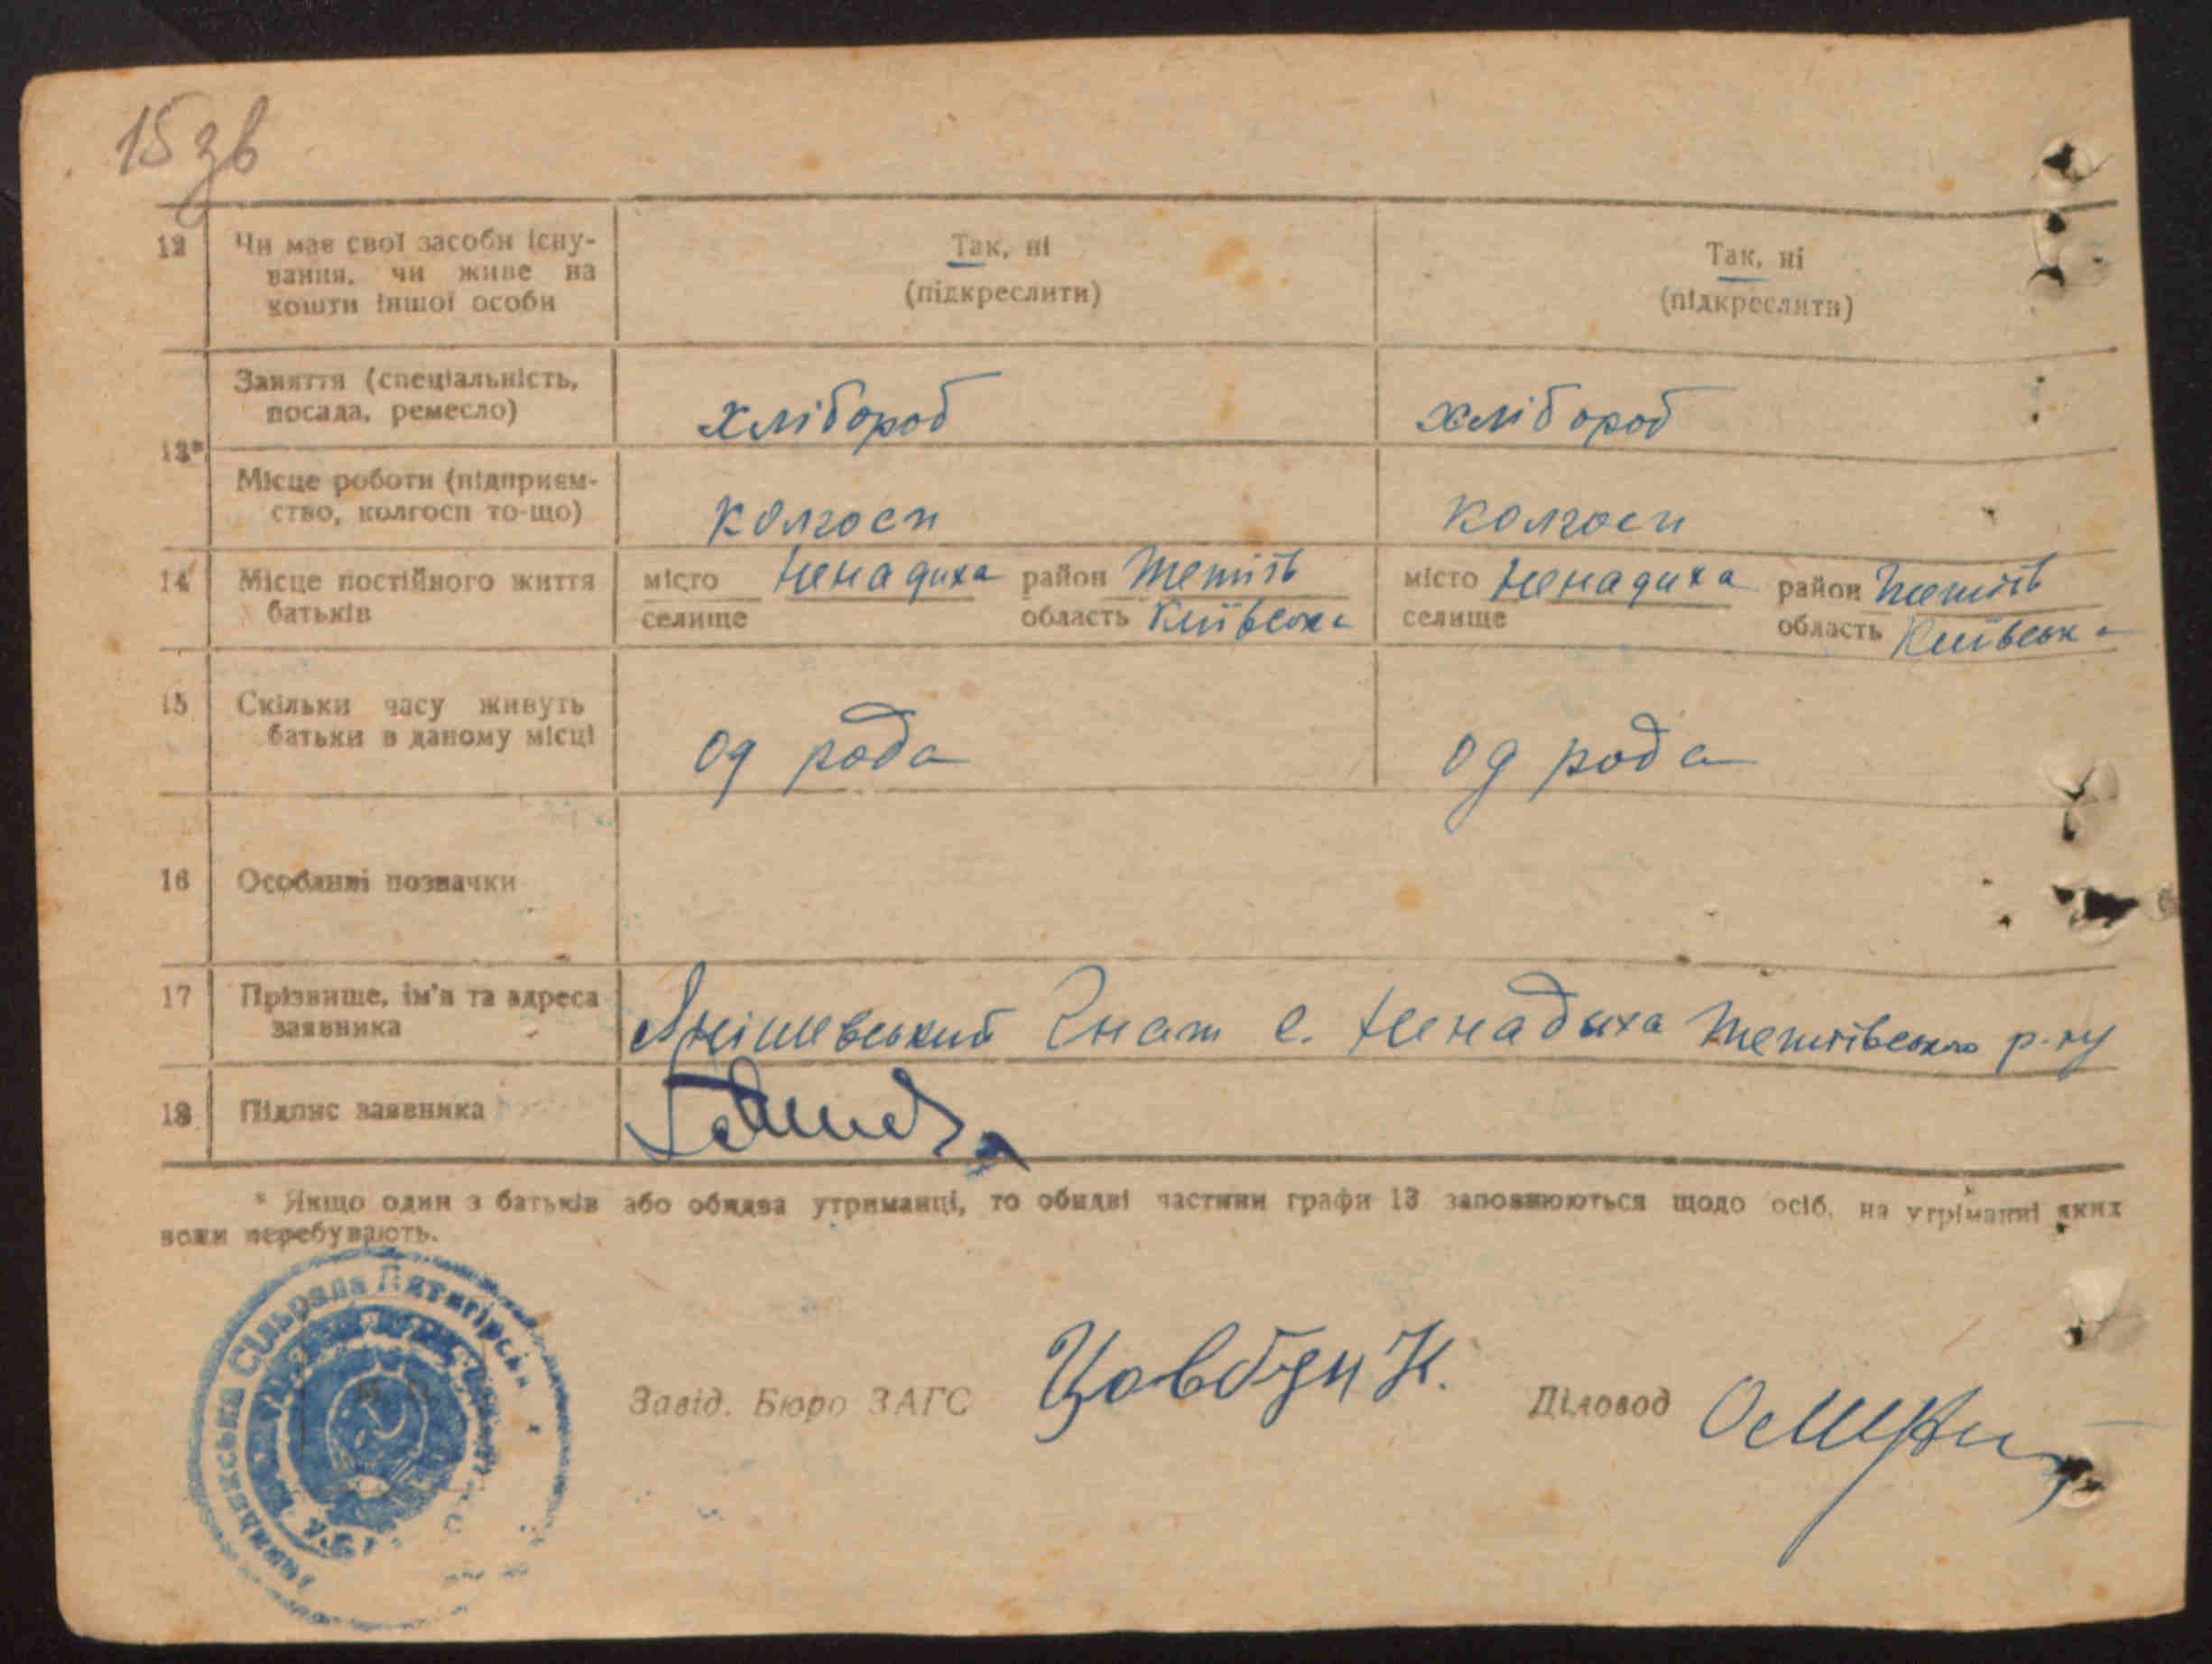 15 зв
12 Чи має свої засоби існу-
вання, чи живе на
кошти іншої особи
Так, ні
(підкреслити)
Так, ні
(підкреслити)
13*
Заняття (спеціальність,
посада, ремесло)
хлібороб
хлібороб
Місце роботи (підприєм-
ство, колгосп то-що)
колгосп
колгосп
14 Місце постійного життя
батьків
місто Ненадиха район Тетіїв
селище область Київська
місто Ненадиха район Тетіїв
селище область Київська
15 Скільки часу живуть
батьки в даному місці
од рода
од рода
16 Особливі позначки
17 Прізвище, ім'я та адреса
заявника
Гнат с. Ненадыха Тетіївського р-ну
18 Підпис заявника
* Якщо один з батьків або обидва утриманці, то обидві частини графи 13 заповнюються щодо осіб, на утріманні яких
вони перебувають.
Сільрада Пятигірськ
Завід. Бюро ЗАГС
Діловод